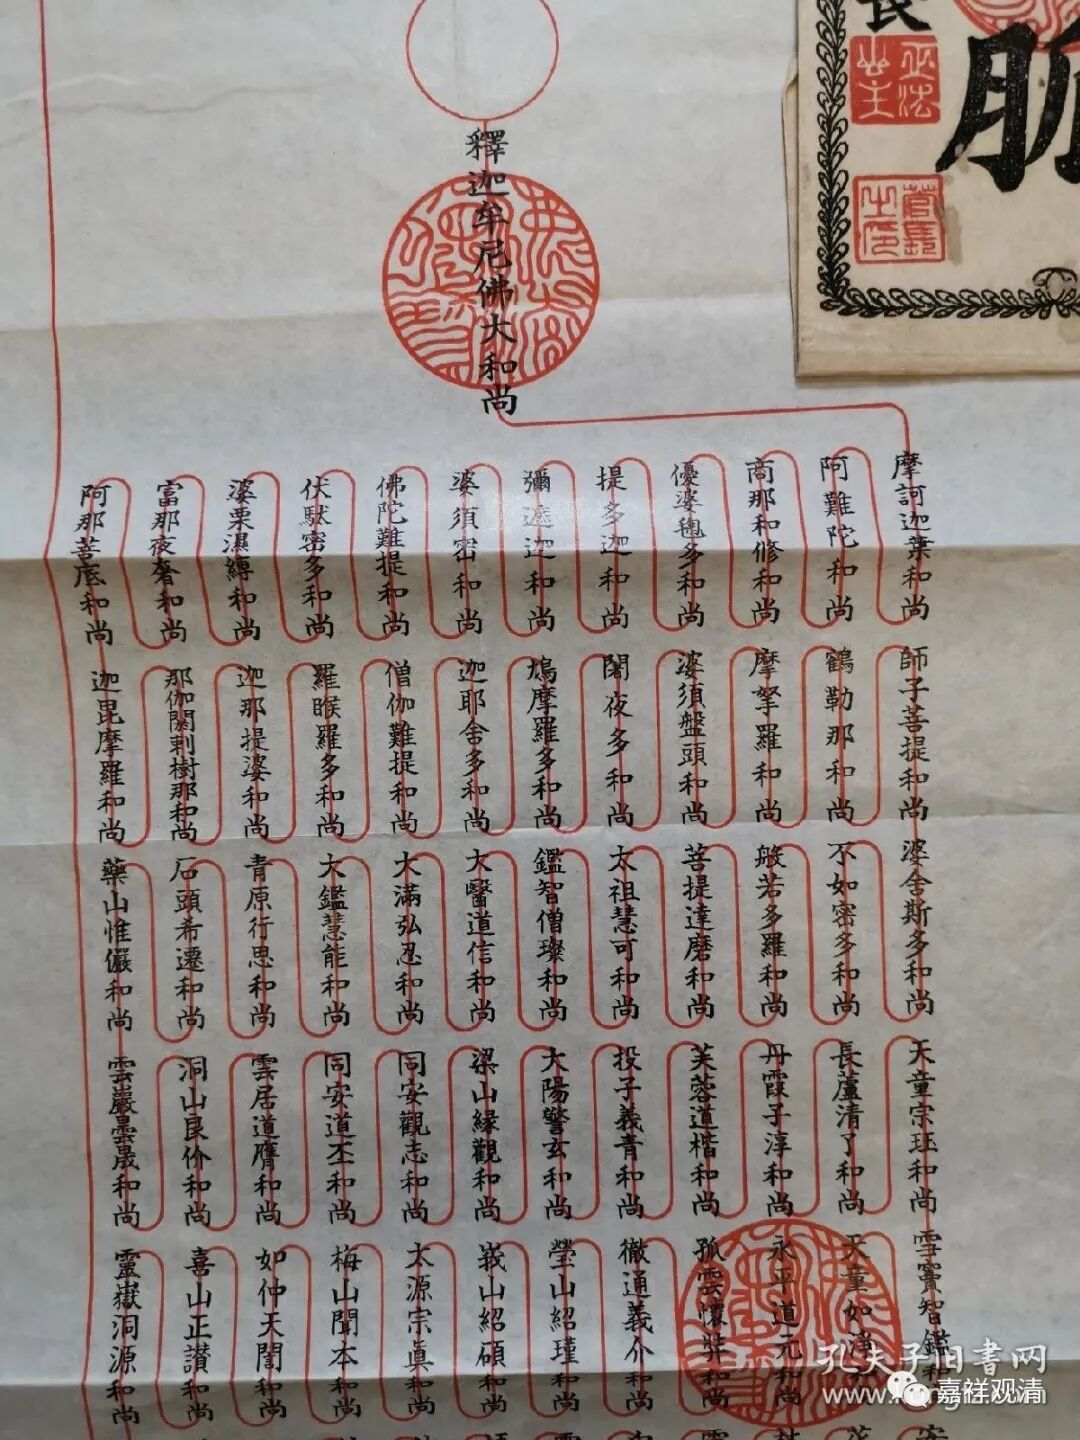 釋迦牟尼佛大和尚
正法山主
管長之印
摩訶迦葉和尚
阿難陀和尚
商那和修和尚
優婆毱多和尚
提多迦和尚
彌遮迦和尚
婆須密和尚
佛陀難提和尚
伏馱密多和尚
婆栗濕縛和尚
富那夜奢和尚
阿那菩底和尚
迦毘摩羅和尚
那伽閼剌樹那和尚
迦那提婆和尚
羅睺羅多和尚
僧伽難提和尚
迦耶舍多和尚
鳩摩羅多和尚
闍夜多和尚
婆須盤頭和尚
摩拏羅和尚
鶴勒那和尚
師子菩提和尚
婆舍斯多和尚
不如密多和尚
般若多羅和尚
菩提達磨和尚
太祖慧可和尚
鑑智僧璨和尚
大醫道信和尚
大滿弘忍和尚
大鑑慧能和尚
青原行思和尚
石頭希遷和尚
藥山惟儼和尚
雲巖曇晟和尚
洞山良价和尚
雲居道膺和尚
同安道丕和尚
同安觀志和尚
梁山緣觀和尚
大陽警玄和尚
投子義青和尚
芙蓉道楷和尚
丹霞子淳和尚
長蘆清了和尚
天童宗珏和尚
雪竇智鑑和
天童如淨
永平道元和尚
孤雲懷弉和尚
徹通義介和尚
瑩山紹瑾和尚
峩山紹碩和尚
太源宗眞和尚
梅山聞本和尚
如仲天誾和尚
喜山正讃和尚
靈嶽洞源和尚
孔夫子旧書网
嘉祥观清